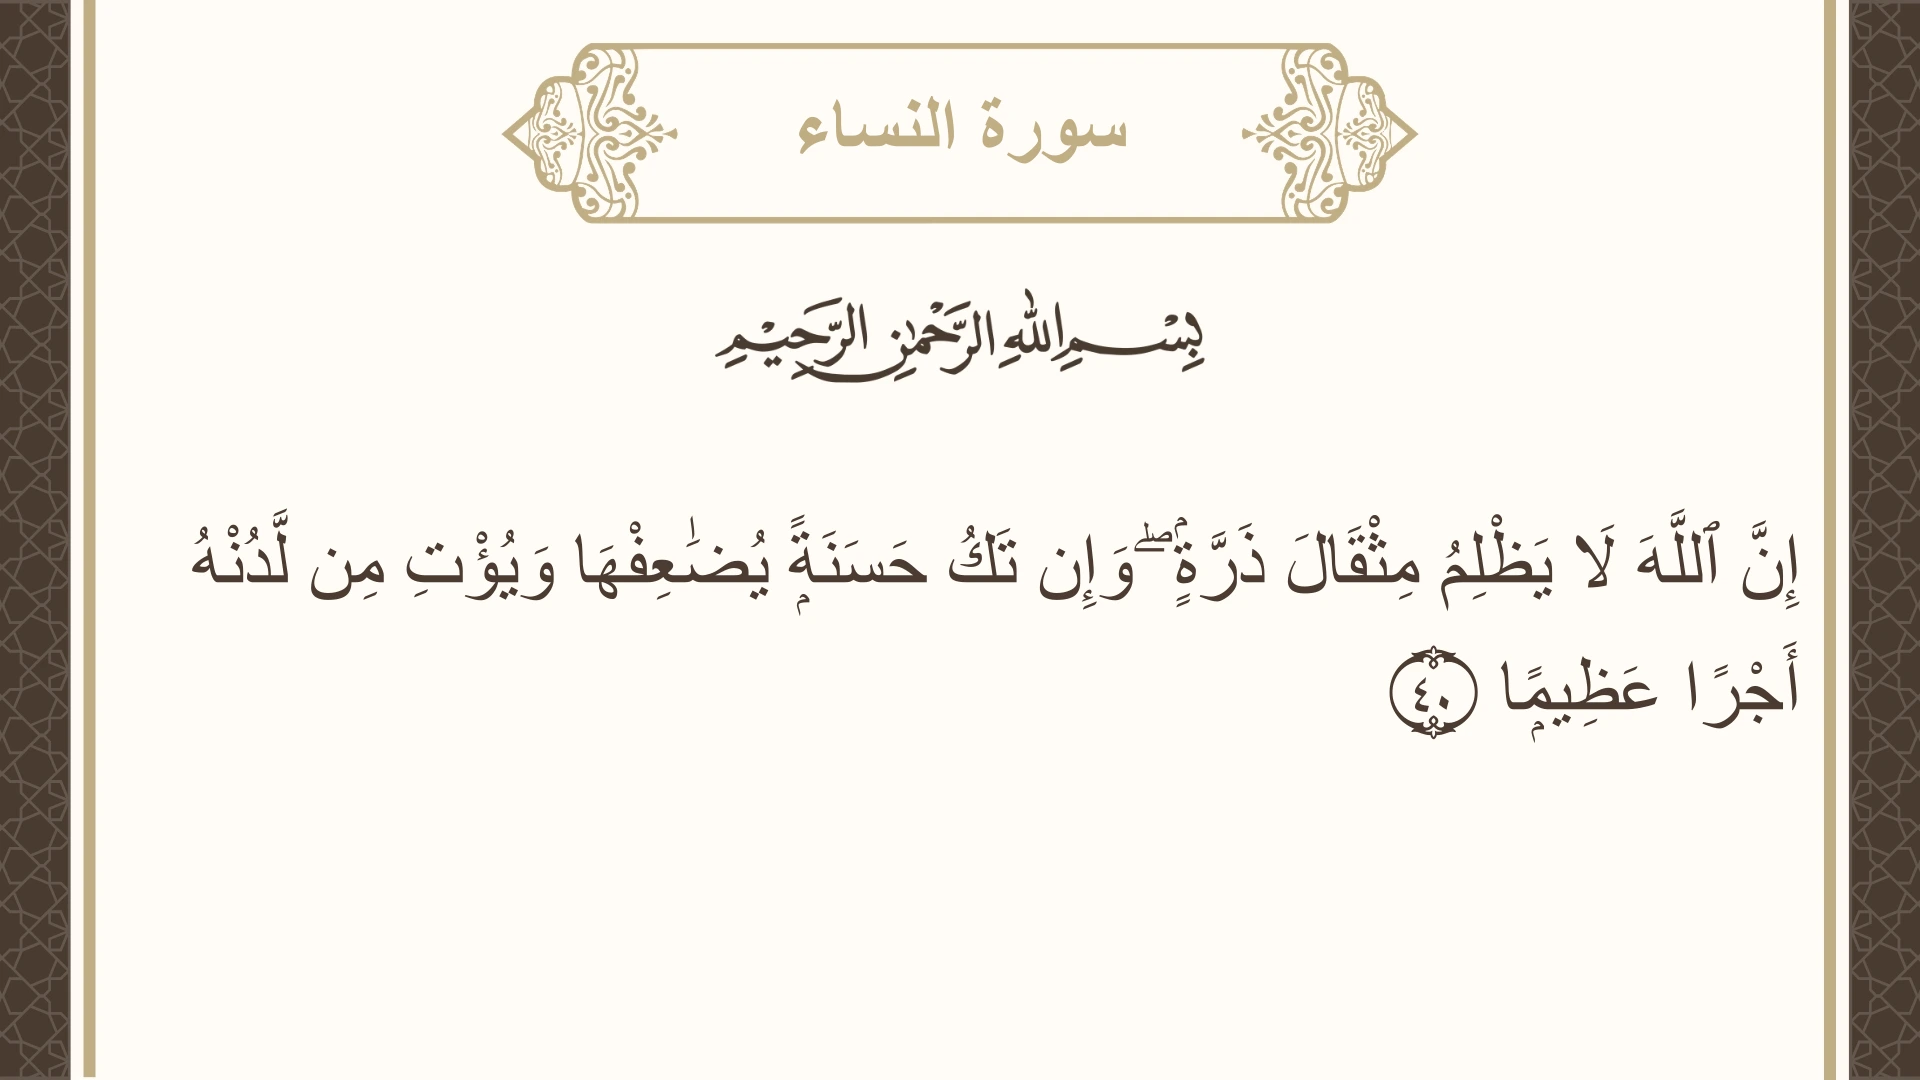 سورة النساء
بِسْمِ اللهِ الرَّحْمٰنِ الرَّحِيْمِ
إِنَّ ٱللَّهَ لَا يَظْلِمُ مِثْقَالَ ذَرَّةٍۢ ۖ وَإِن تَكُ حَسَنَةًۭ يُضَـٰعِفْهَا وَيُؤْتِ مِن لَّدُنْهُ
أَجْرًا عَظِيمًۭا ٤٠